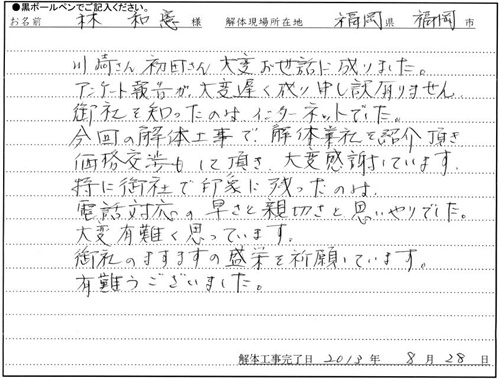 ●黒ボールペンでご記入ください。
お名前 林 和恵 様 解体現場所在地 福岡 県 福岡 市
川崎さん 初田さん 大変お世話に成りました。
アンケート報告が大変遅く成り申し訳有りません
御社を知ったのは インターネットでした。
今回の解体工事で、解体業社を紹介頂き
価格交渉もして頂き、大変感謝しています。
特に御社で印象に残ったのは、
電話対応の早さと親切さと思いやりでした。
大変有難く思っています。
御社のますますの盛栄を祈願しています。
有難うございました。
解体工事完了日 2013 年 8 月 28 日